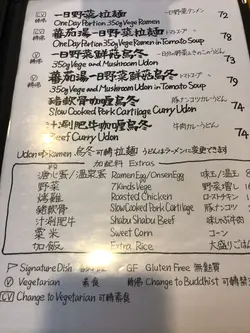 一日野菜拉麵 一日野菜タンメン 72
One Day Portion 350g Vege Ramen
蕃茄湯一日野菜拉麵 78
One Day Portion 350g Vege Ramen in Tomato Soup
一日野菜鮮菇烏冬 73
350g Vege and Mushroom Udon
蕃茄湯一日野菜鮮菇烏冬 79
350g Vege and Mushroom Udon in Tomato Soup
豬軟骨咖喱烏冬 豚ナンコツカレーうどん 74
Slow Cooked Pork Cartilage Curry Udon
汁涮肥牛咖喱烏冬 牛肉カレーうどん 74
Beef Curry Udon
Udon ⇔ Ramen 烏冬可轉拉麵 うどんはラーメンに変更できます
加配料 Extras
溏心蛋/溫泉蛋 Ramen Egg/Onsen Egg 味玉/温玉
野菜 7 Kinds Vege 野菜増し
烤雞 Roasted Chicken ローストチキン
豬軟骨 Slow Cooked Pork Cartilage 豚ナンコツ
汁涮肥牛 Shabu Shabu Beef 味しゃぶ牛肉
粟米 Sweet Corn コーン
加飯 Extra Rice 大盛りごはん
Signature Dish
GF Gluten Free 無麩質
V Vegetarian 素食
Change to Buddhist 可轉
CV Change to Vegetarian 可轉素食